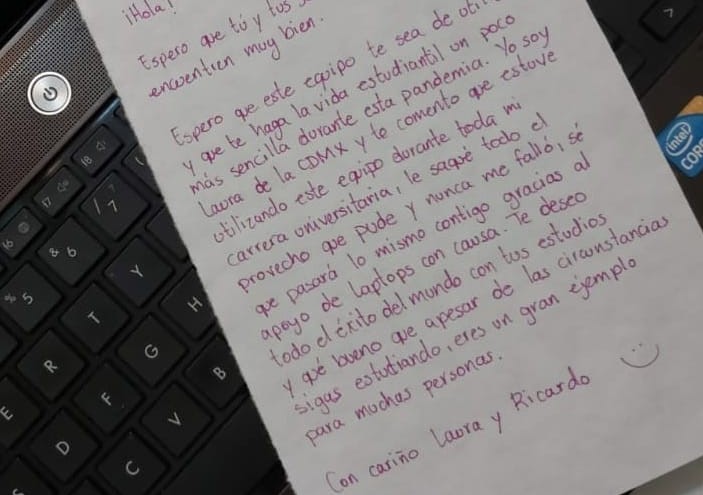 ¡Hola!
Espero que tú y tus
encuentren muy bien.
Espero que este equipo te sea de
y que te haga la vida estudiantil un poco
más sencilla durante esta pandemia. Yo soy
Laura de la CDMX y te comento que estuve
utilizando este equipo durante toda mi
carrera universitaria, le saqué todo el
provecho que pude y nunca me falló, sé
que pasará lo mismo contigo gracias al
apoyo de Laptops con causa. Te deseo
todo el éxito del mundo con tus estudios
y qué bueno que apesar de las circunstancias
sigas estudiando, eres un gran ejemplo
para muchas personas.
Con cariño Laura y Ricardo
intel
CORE
16
17
18
% 5
& 6
/ 7
R
T
Y
E
D
F
G
H
C
V
B